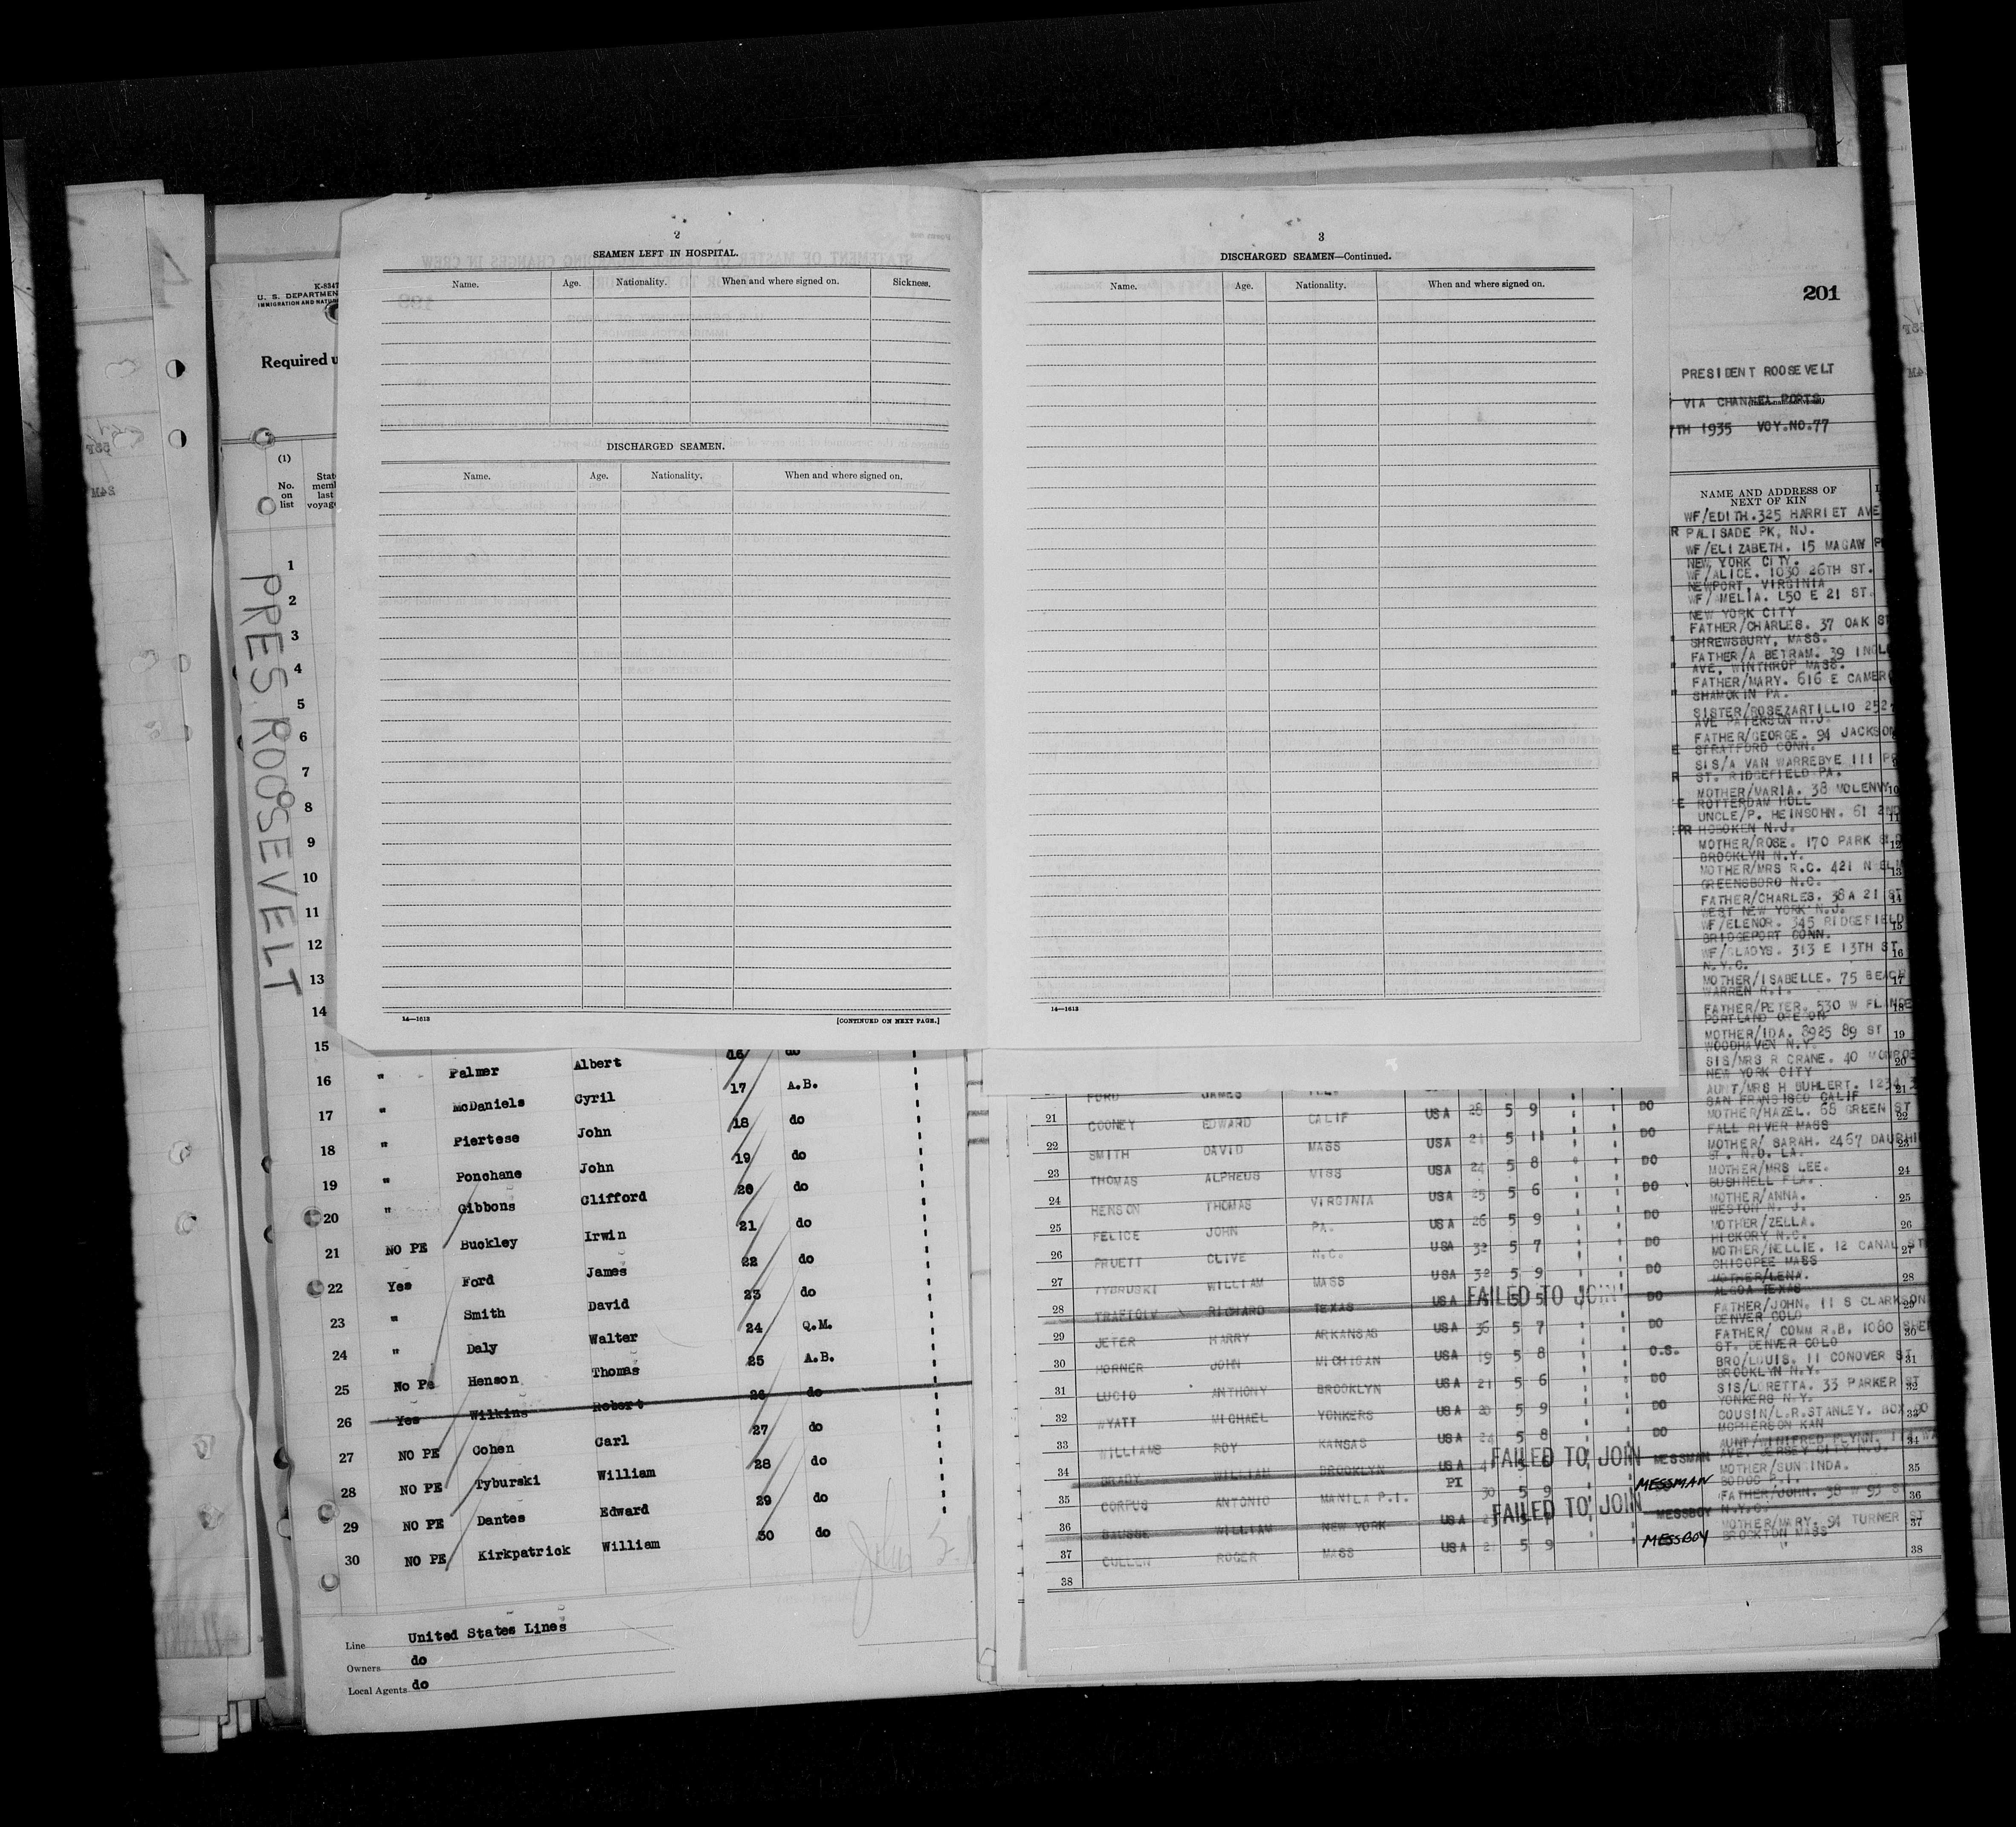 2
SEAMEN LEFT IN HOSPITAL.
Name. Age. Nationality. When and where signed on. Sickness.
DISCHARGED SEAMEN.
Name. Age. Nationality. When and where signed on.
14—1613 [CONTINUED ON NEXT PAGE.]
3
DISCHARGED SEAMEN—Continued.
Name. Age. Nationality. When and where signed on.
14—1613
201
K-8347
U. S. DEPARTMEN
IMMIGRATION AND NATU
Required u
(1)
No. on list
State
memb
last
voyage
PRES. ROOSEVELT
1
2
3
4
5
6
7
8
9
10
11
12
13
14
15
16 " Palmer Albert 16 do
17 " McDaniels Cyril 17 A.B.
18 " Piertese John 18 do
19 " Ponchane John 19 do
20 " Gibbons Clifford 20 do
21 NO PE Buckley Irwin 21 do
22 Yes Ford James 22 do
23 " Smith David 23 do
24 " Daly Walter 24 Q.M.
25 No Pe Henson Thomas 25 A.B.
26 Yes Wilkins Robert 26 do
27 NO PE Cohen Carl 27 do
28 NO PE Tyburski William 28 do
29 NO PE Dantes Edward 29 do
30 NO PE Kirkpatrick William 30 do
Line United States Lines
Owners do
Local Agents do
PRESIDENT ROOSEVELT
VIA CHANNEL PORTS
7TH 1935 VOY.NO.77
NAME AND ADDRESS OF
NEXT OF KIN
WF/EDITH.325 HARRIET AVE
R PALISADE PK, NJ.
WF/ELIZABETH. 15 MAGAW P
NEW YORK CITY.
WF/ALICE. 1030 26TH ST.
NEWPORT, VIRGINIA
WF/AMELIA. L50 E 21 ST.
NEW YORK CITY
FATHER/CHARLES. 37 OAK ST
SHREWSBURY, MASS.
FATHER/A BETRAM. 39 INGL
AVE, WINTHROP MASS.
FATHER/MARY. 616 E CAMER
SHAMOKIN PA.
SISTER/ROSEZARTILLIO 252
AVE PATERSON N.J.
FATHER/GEORGE. 94 JACKSON
E STRATFORD CONN.
SIS/A VAN WARREBYE 111 P
R ST. RIDGEFIELD PA.
MOTHER/MARIA. 38 MOLENW 10
E ROTTERDAM HOLL
UNCLE/P. HEINSOHN. 61 2ND 11
PR HOBOKEN N.J.
MOTHER/ROSE. 170 PARK 12
BROOKLYN N.Y.
MOTHER/MRS R.C. 421 N ELM 13
GREENSBORO N.C.
FATHER/CHARLES. 38A 21 ST 14
WEST NEW YORK N.J.
WF/ELENOR. 345 RIDGEFIELD 15
BRIDGEPORT CONN.
WF/GLADYS. 313 E 13TH ST 16
N.Y.C.
MOTHER/ISABELLE. 75 BEACH 17
WARREN R.I.
FATHER/PETER. 530 W 18
PORTLAND OREGON
MOTHER/IDA. 8925 89 ST 19
WOODHAVEN N.Y.
SIS/MRS R CRANE. 40 MONROE 20
NEW YORK CITY
FORD JAMES AUNT/MRS H BUHLERT. 1234 21
SAN FRANSISCO CALIF
21 COONEY EDWARD CALIF USA 28 5 9 DO MOTHER/HAZEL. 65 GREEN ST 22
FALL RIVER MASS
22 SMITH DAVID MASS USA 21 5 11 DO MOTHER/ SARAH. 2467 23
ST. N.O. LA.
23 THOMAS ALPHEUS MISS USA 24 5 8 DO MOTHER/MRS LEE. 24
BUSHNELL FLA.
24 HENSON THOMAS VIRGINIA USA 25 5 6 DO MOTHER/ANNA. 25
WESTON N. J.
25 FELICE JOHN PA. USA 26 5 9 DO MOTHER/ZELLA. 26
HICKORY N.C.
26 PRUETT CLIVE N.C. USA 32 5 7 DO MOTHER/NELLIE. 12 CANAL ST 27
CHICOPEE MASS
27 TYBRUSKI WILLIAM MASS USA 32 5 9 DO MOTHER/LENA. 28
ALGOA TEXAS
28 RICHARD TEXAS USA FAILED TO JOIN DO FATHER/JOHN. 11 S CLARKSON 29
DENVER COLO
29 JETER HARRY ARKANSAS USA 36 5 7 DO FATHER/ COMM R.B. 1080 SHE 30
ST. DENVER COLO
30 HORNER JOHN MICHIGAN USA 19 5 8 O.S. BRO/LOUIS. 11 CONOVER ST 31
BROOKLYN N.Y.
31 LUCIO ANTHONY BROOKLYN USA 21 5 6 DO SIS/LORETTA. 33 PARKER ST 32
YONKERS N.Y.
32 WYATT MICHAEL YONKERS USA 20 5 9 DO COUSIN/L.R.STANLEY. BOX 33
MCPHERSON KAN
33 WILLIAMS ROY KANSAS USA 24 5 8 DO AUNT/WINIFRED FLYNN. 34
AVE. JERSEY CITY N.J.
34 GRADY WILLIAM BROOKLYN USA FAILED TO JOIN MESSMAN MOTHER/SUN INDA. 35
35 CORPUS ANTONIO MANILA P.I. PI 30 5 9 MESSMAN FATHER/JOHN. 38 W 93 36
N.Y.C.
36 BAUSSE WILLIAM NEW YORK USA FAILED TO JOIN MESSBOY MOTHER/MARY. 94 TURNER ST 37
BROCKTON MASS
37 CULLEN ROGER MASS USA 21 5 9 MESSBOY 38
38